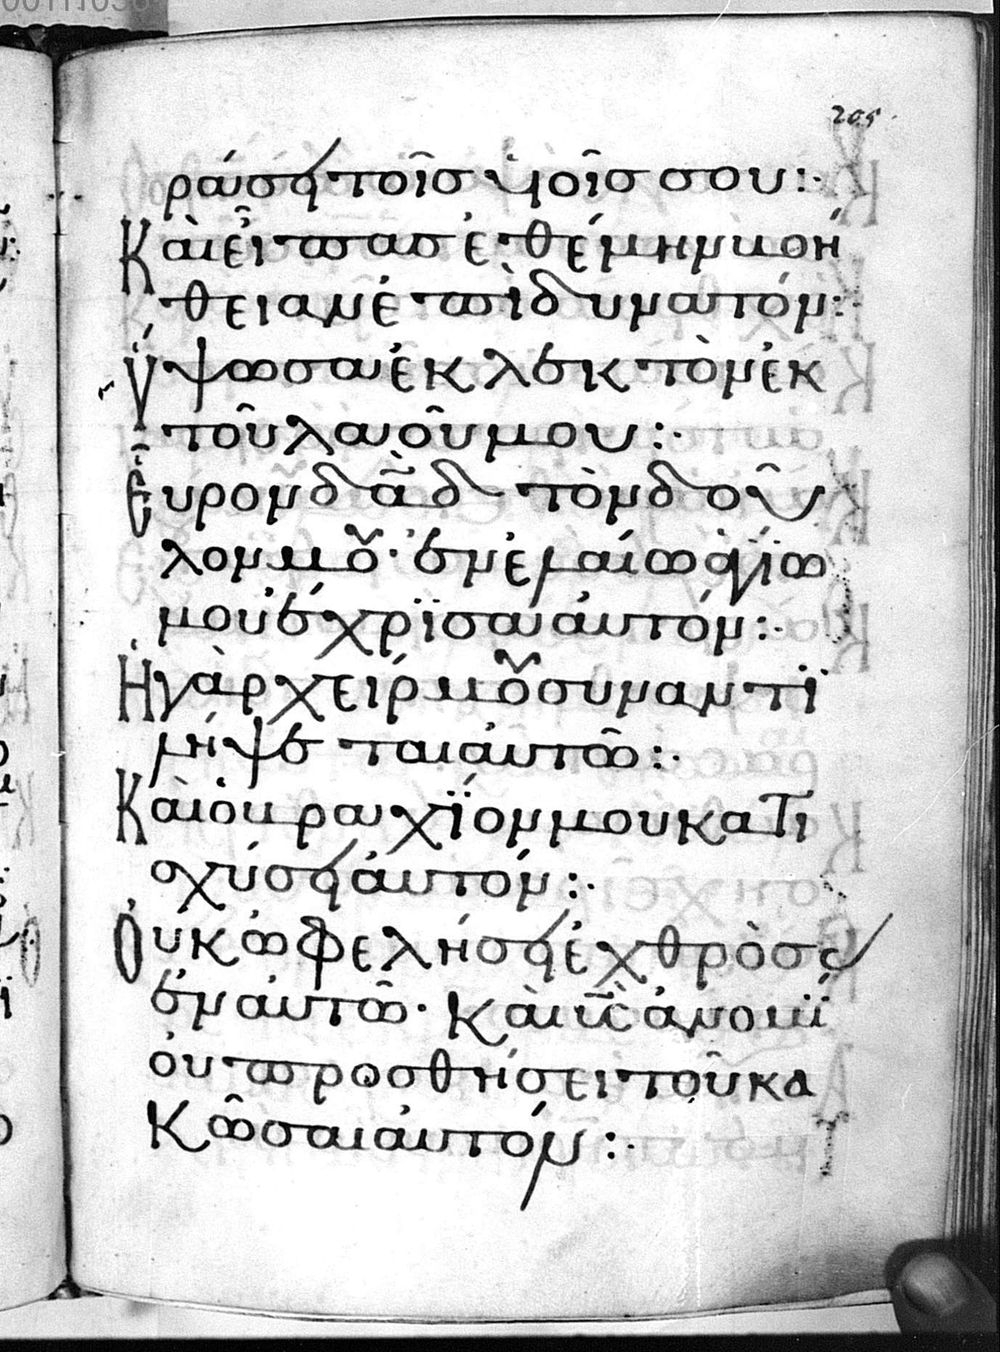 205
ράσει τοῖς υἱοῖς σου:
Καὶ εἶπας ἐθέμην βοή
θειαν ἐπὶ δυνατόν:
ὕψωσα ἐκλεκτὸν ἐκ
τοῦ λαοῦ μου:
Εὗρον δᾱδ τὸν δοῦ
λον μου· ἐν ἐλαίω ἁγίω
μου ἔχρϊσα αὐτόν:
Ἡ γὰρ χείρ μου συναντϊ
λήψεται αὐτῶ:
Καὶ ὁ βραχΐον μου κατι
σχύσει αὐτόν:
Οὐκ ὠφελήσει ἐχθρὸς
ἐν αὐτῶ· Καὶ υἱὸς ἀνομί
ου προσθήσει τοῦ κα
Κῶσαι αὐτόν: